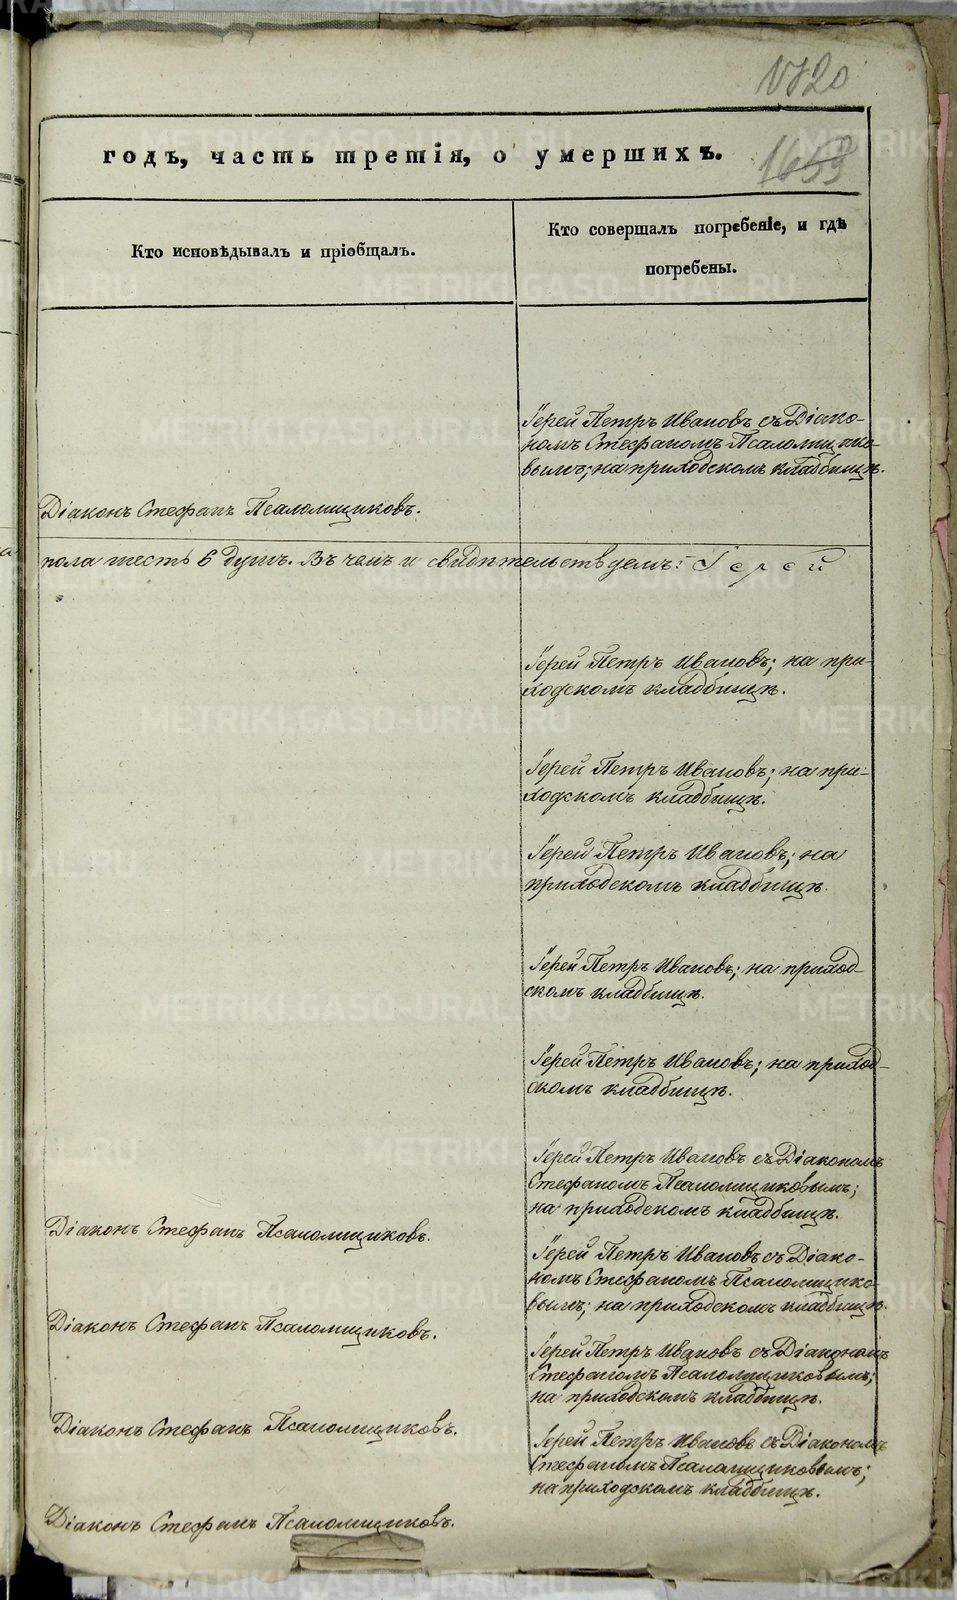 1720
годъ, часть третія, о умершихъ.
1653
Кто исповѣдывалъ и пріобщалъ.
Кто совершалъ погребеніе, и гдѣ
погребены.
Іерей Петръ Ивановъ съ Діако-
номъ Стефаномъ Псаломщико-
вымъ; на приходскомъ кладбищѣ.
Діаконъ Стефанъ Псаломщиковъ.
пола шесть 6 душъ. Въ чемъ и свидѣтельствуемъ: Іерей
Іерей Петръ Ивановъ; на при-
ходскомъ кладбищѣ.
Іерей Петръ Ивановъ; на при-
ходскомъ кладбищѣ.
Іерей Петръ Ивановъ; на
приходскомъ кладбищѣ.
Іерей Петръ Ивановъ; на приход-
скомъ кладбищѣ.
Іерей Петръ Ивановъ; на приход-
скомъ кладбищѣ.
Іерей Петръ Ивановъ съ Діакономъ
Стефаномъ Псаломщиковымъ;
на приходскомъ кладбищѣ.
Діаконъ Стефанъ Псаломщиковъ.
Іерей Петръ Ивановъ съ Діако-
номъ Стефаномъ Псаломщико-
вымъ; на приходскомъ кладбищѣ.
Діаконъ Стефанъ Псаломщиковъ.
Іерей Петръ Ивановъ съ Діакономъ
Стефаномъ Псаломщиковымъ;
на приходскомъ кладбищѣ.
Діаконъ Стефанъ Псаломщиковъ.
Іерей Петръ Ивановъ съ Діакономъ
Стефаномъ Псаломщиковымъ;
на приходскомъ кладбищѣ.
Діаконъ Стефанъ Псаломщиковъ.
METRIKI.GASO-URAL.RU